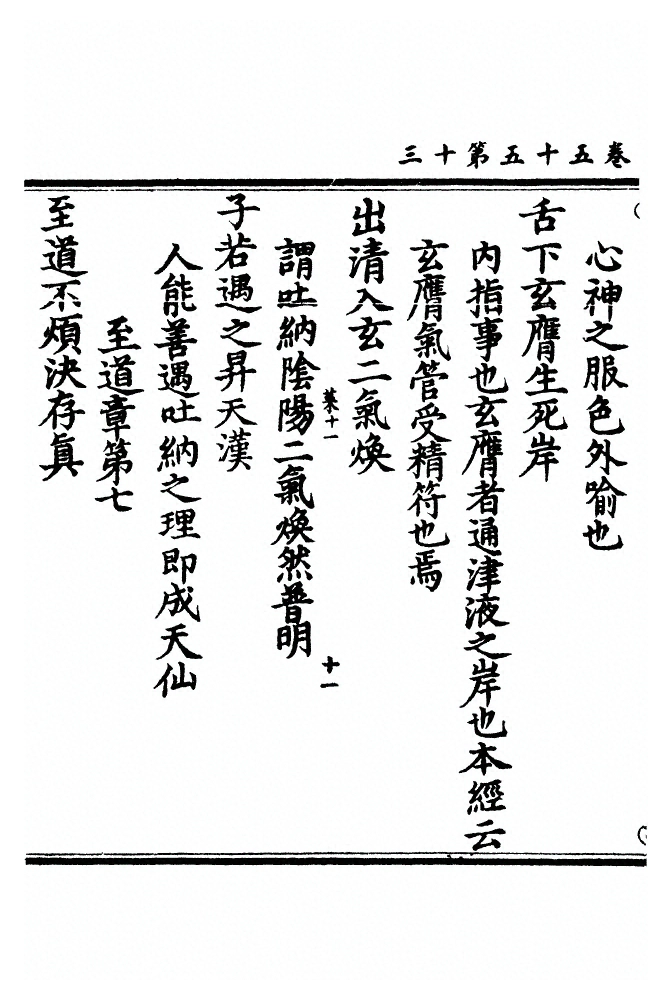 卷五十五第十三
心神之服色外喻也
舌下玄膺生死岸
內指事也玄膺者通津液之岸也本經云
玄膺氣管受精符也焉
出清入玄二氣煥
菜十一
十一
謂吐納陰陽二氣煥然普明
子若遇之昇天漢
人能善遇吐納之理即成天仙
至道章第七
至道不煩決存眞